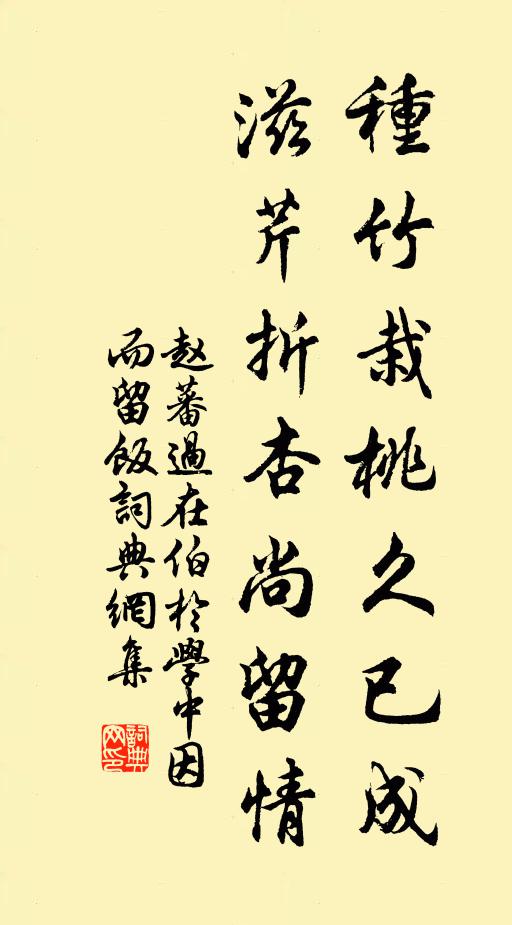 種竹栽桃久已成
滋芹折杏尚留情
赵蕃過在伯於學中因
而留飯詞典網集
詞典
网印